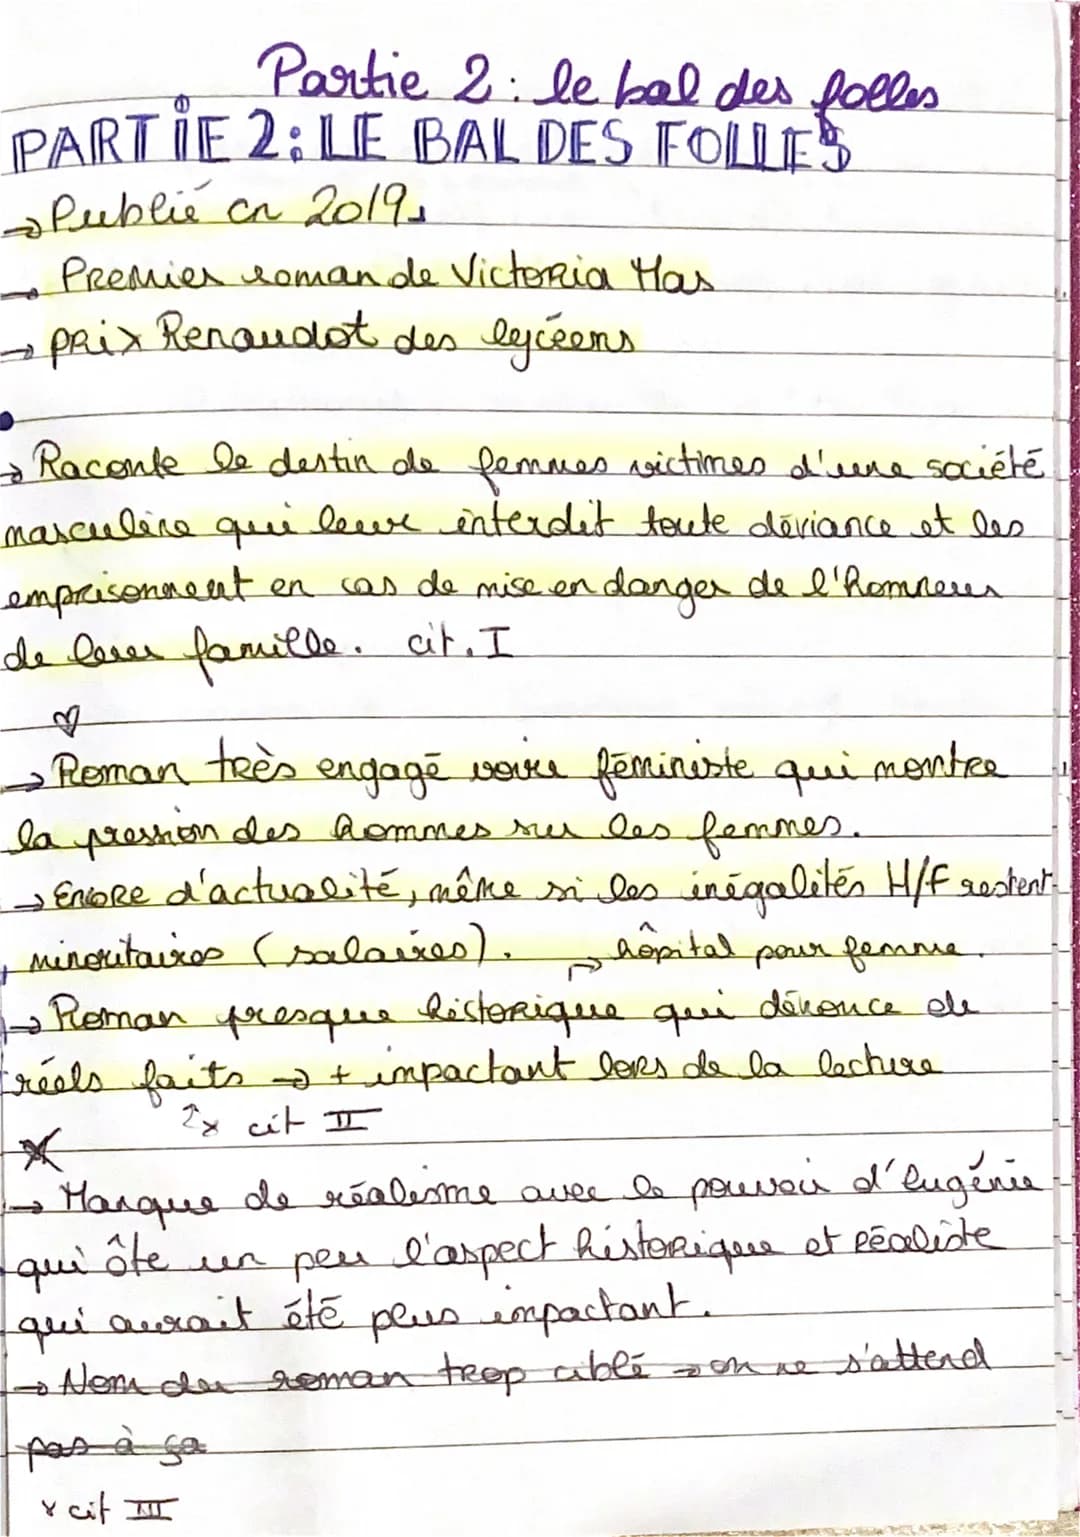 Partie 2 : le bal des folles
PARTIE 2 : LE BAL DES FOLLES
→ Publié en 2019.
→ Premier roman de Victoria Mas
→ prix Renaudot des lycéens
→ Raconte le destin de femmes victimes d'une société
masculine qui leur interdit toute déviance et les
emprisonnent en cas de mise en danger de l'honneur
de leur famille. cit. I
♡
→ Roman très engagé voire féministe qui montre
la pression des hommes sur les femmes.
→ Encore d'actualité, même si les inégalités H/F restent
minoritaires (salaires). → hôpital pour femme.
→ Roman presque historique qui dénonce de
réels faits → + impactant lors de la lecture
2x cit II
→ Manque de réalisme avec le pouvoir d'Eugénie
qui ôte un peu l'aspect historique et réaliste
qui aurait été plus impactant.
→ Nom du roman trop ciblé → on ne s'attend
pas à ça
x cit III